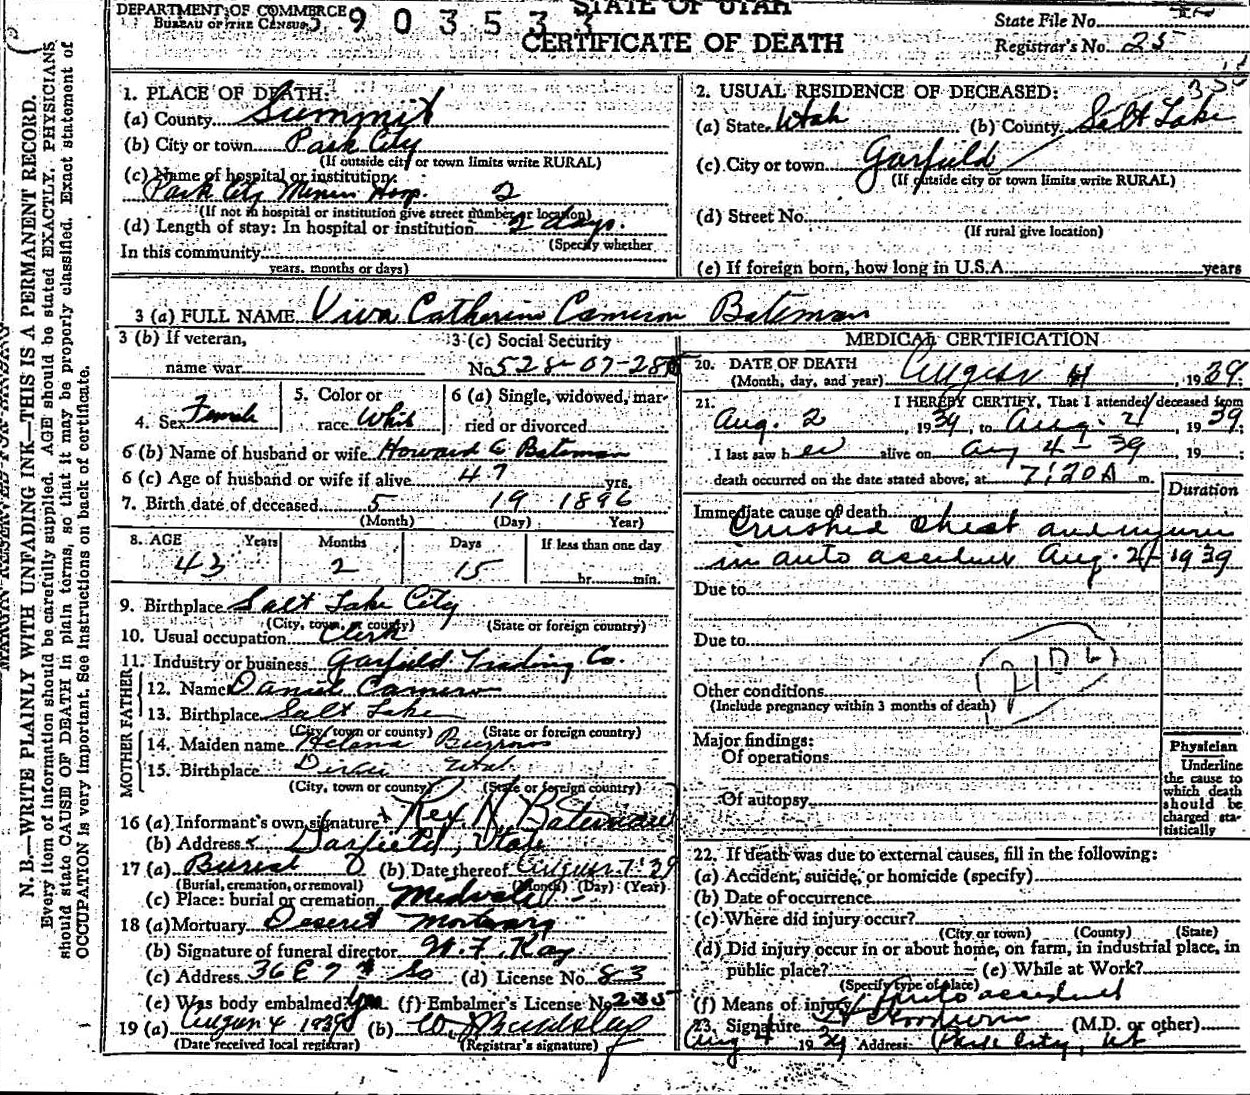 DEPARTMENT OF COMMERCE
BUREAU OF THE CENSUS
903533
STATE OF UTAH
CERTIFICATE OF DEATH
State File No.
Registrar's No. 25
MARGIN RESERVED FOR BINDING
N. B.—WRITE PLAINLY WITH UNFADING INK—THIS IS A PERMANENT RECORD.
Every item of information should be carefully supplied. AGE should be stated EXACTLY. PHYSICIANS
should state CAUSE OF DEATH in plain terms, so that it may be properly classified. Exact statement of
OCCUPATION is very important. See instructions on back of certificate.
1. PLACE OF DEATH:
(a) County Summit
(b) City or town Park City
(If outside city or town limits write RURAL)
(c) Name of hospital or institution:
Park City Miners Hosp. 2
(If not in hospital or institution give street number or location)
(d) Length of stay: In hospital or institution 2 days.
(Specify whether
In this community
years, months or days)
2. USUAL RESIDENCE OF DECEASED:
(a) State Utah (b) County Salt Lake
(c) City or town Garfield
(If outside city or town limits write RURAL)
(d) Street No.
(If rural give location)
(e) If foreign born, how long in U.S.A. years
3 (a) FULL NAME Viva Catherine Cameron Bateman
3 (b) If veteran,
name war
3 (c) Social Security
No. 528-07-28
4. Sex Female
5. Color or
race White
6 (a) Single, widowed, mar-
ried or divorced
6 (b) Name of husband or wife Howard E Bateman
6 (c) Age of husband or wife if alive 47 yrs.
7. Birth date of deceased 5 19 1896
(Month) (Day) Year)
8. AGE Years Months Days If less than one day
43 2 15 hr. min.
9. Birthplace Salt Lake City
(City, town, or county) (State or foreign country)
10. Usual occupation Clerk
11. Industry or business Garfield Trading Co.
FATHER
12. Name Daniel Cameron
13. Birthplace Salt Lake
(City, town or county) (State or foreign country)
MOTHER
14. Maiden name Helena Burrows
15. Birthplace Utah
(City, town or county) (State or foreign country)
16 (a) Informant's own signature x Rex H Bateman
(b) Address Garfield, Utah
17 (a) Burial (b) Date thereof August 7 '39
(Burial, cremation, or removal) (Month) (Day) (Year)
(c) Place: burial or cremation Midvale
18 (a) Mortuary Deseret Mortuary
(b) Signature of funeral director Kay
(c) Address 36 E 7th So (d) License No. 83
(e) Was body embalmed? Yes (f) Embalmer's License No. 235
19 (a) August 4 1939 (b)
(Date received local registrar) (Registrar's signature)
MEDICAL CERTIFICATION
20. DATE OF DEATH
(Month, day, and year) August 4, 1939;
21. I HEREBY CERTIFY, That I attended deceased from
Aug. 2, 1939, to Aug. 4, 1939;
I last saw her alive on Aug 4 - 39, 19 ;
death occurred on the date stated above, at 7:20 A m.
Duration
Immediate cause of death
Crushed chest and injuries
in auto accident Aug. 2 - 1939
Due to
Due to
Other conditions
(Include pregnancy within 3 months of death)
Major findings:
Of operations
Of autopsy
Physician
Underline
the cause to
which death
should be
charged sta-
tistically
22. If death was due to external causes, fill in the following:
(a) Accident, suicide, or homicide (specify)
(b) Date of occurrence
(c) Where did injury occur?
(City or town) (County) (State)
(d) Did injury occur in or about home, on farm, in industrial place, in
public place? (e) While at Work?
(Specify type of place)
(f) Means of injury Auto accident
23. Signature (M.D. or other)
Aug 4 1939 Address Park City, Ut